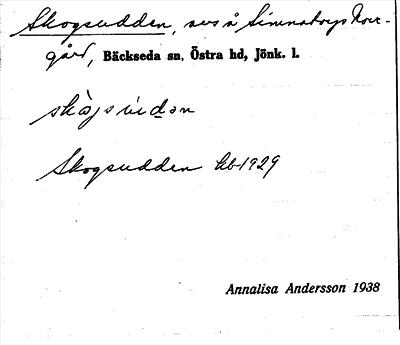 Skogsudden, avs å Simmatorps Norr-
gård, Bäckseda sn, Östra hd, Jönk. l.
skògsùdən
Skogsudden kb 1929
Annalisa Andersson 1938